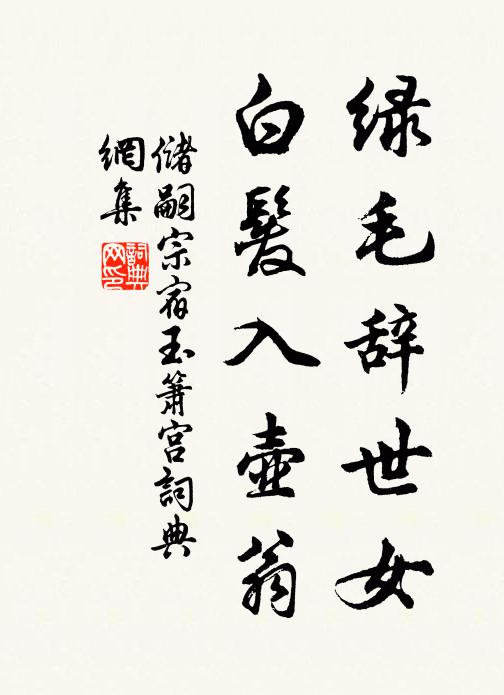 绿毛辞世女
白髮入壶翁
储嗣宗宿玉箫宫詞典
網集
詞典网印